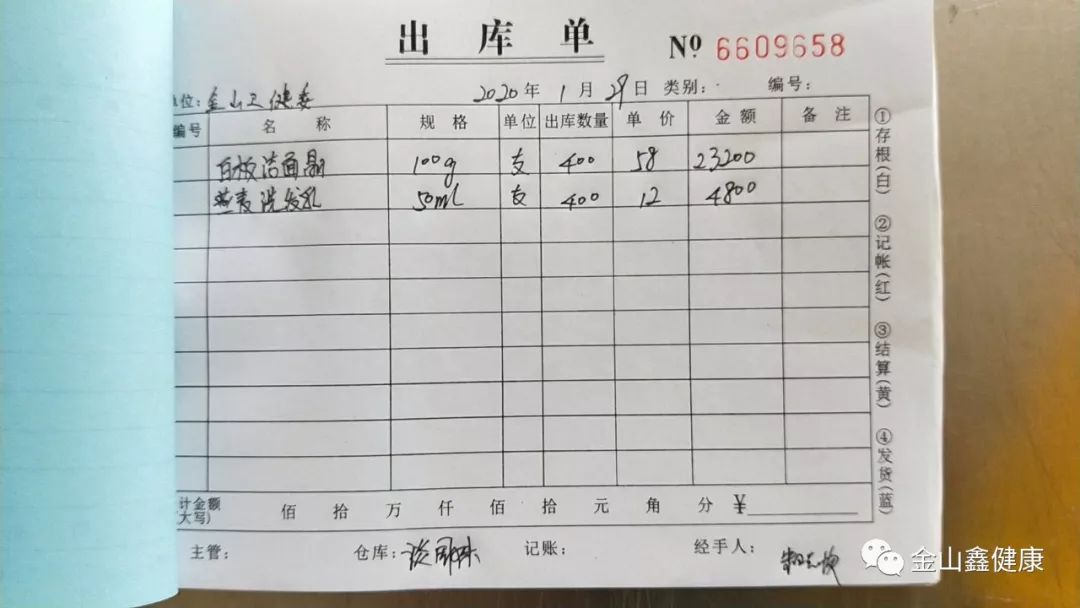 出库单
Nº 6609658
位: 金山卫健委 2020年1月29日 类别: 编号:
编号 名称 规格 单位 出库数量 单价 金额 备注
白板洁面晶 100g 支 400 58 23200
燕麦洗发乳 50ml 支 400 12 4800
计金额(大写) 佰 拾 万 仟 佰 拾 元 角 分 ¥
主管: 仓库: 记账: 经手人:
①存根(白)
②记帐(红)
③结算(黄)
④发货(蓝)
金山鑫健康